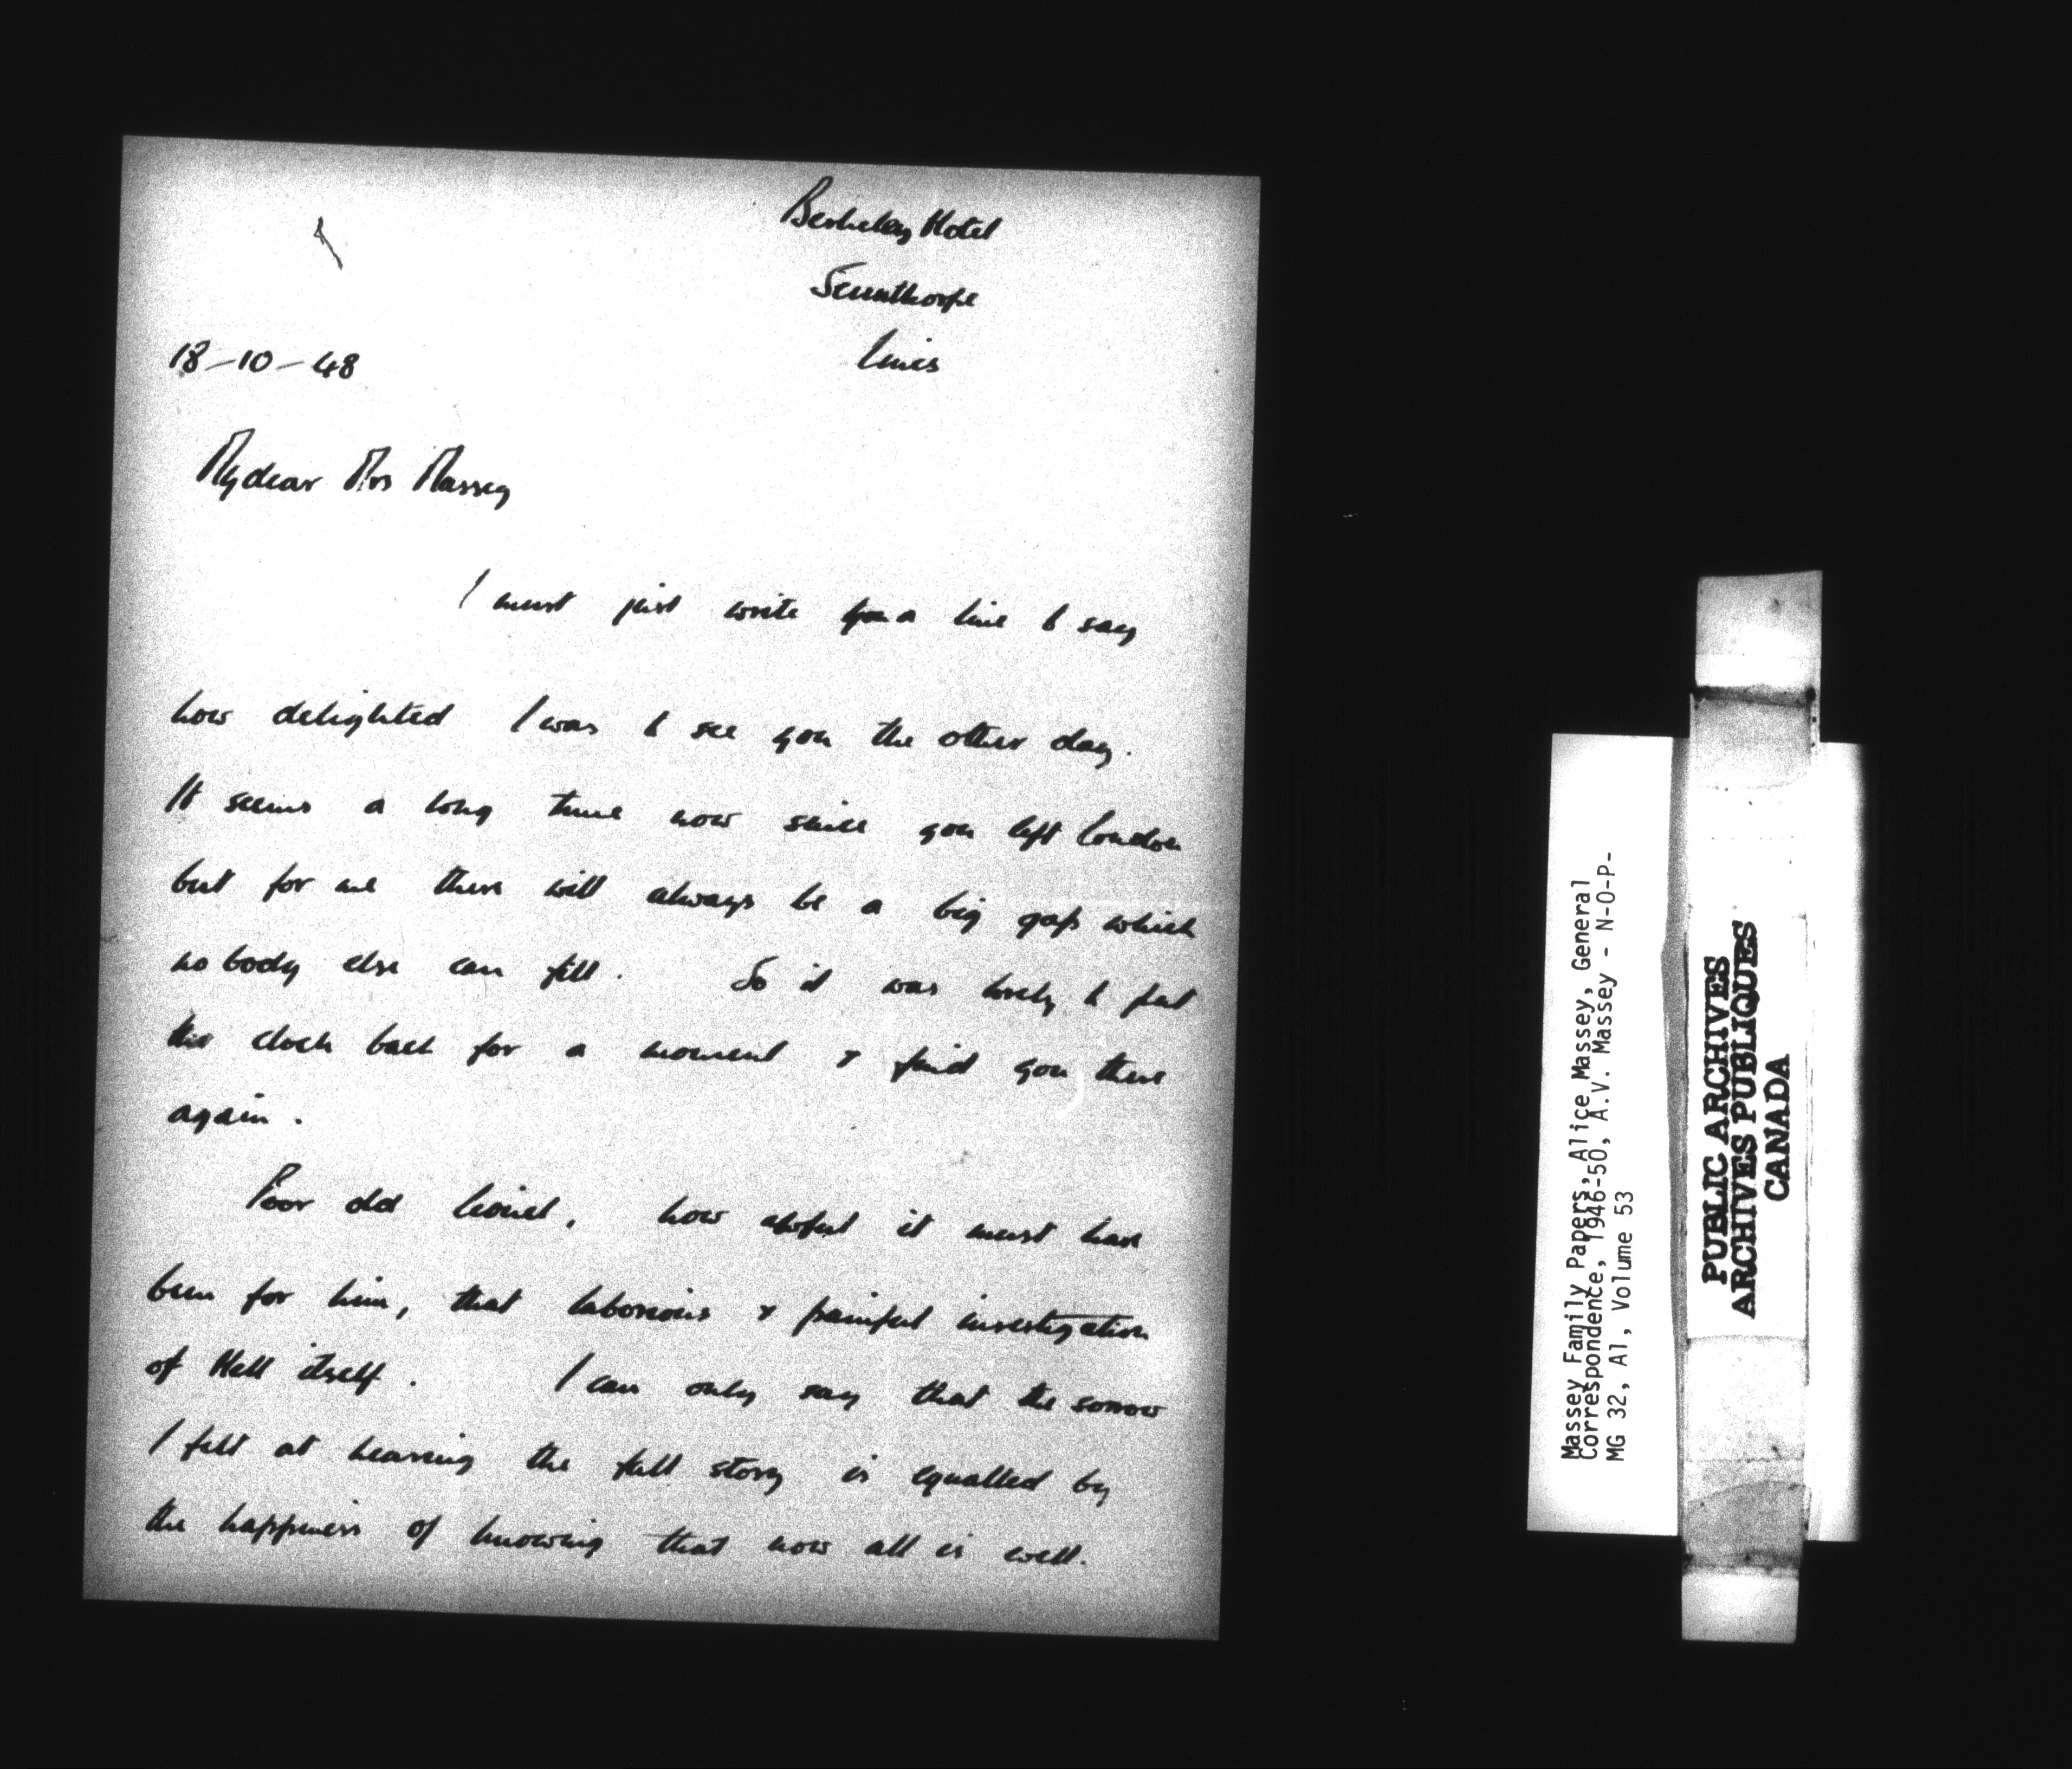 Berkeley Hotel
Scunthorpe
Lincs
18-10-48
My dear Mrs Massey
I must just write you a line to say
how delighted I was to see you the other day.
It seems a long time now since you left London
but for me there will always be a big gap which
nobody else can fill. So it was lovely to put
the clock back for a moment & find you there
again.
Poor old Lionel, how awful it must have
been for him, that laborious & painful investigation
of Hell itself. I can only say that the sorrow
I felt at hearing the full story is equalled by
the happiness of knowing that now all is well.
Massey Family Papers, Alice Massey, General
Correspondence, 1946-50, A.V. Massey - N-O-P-
MG 32, A1, Volume 53
PUBLIC ARCHIVES
ARCHIVES PUBLIQUES
CANADA